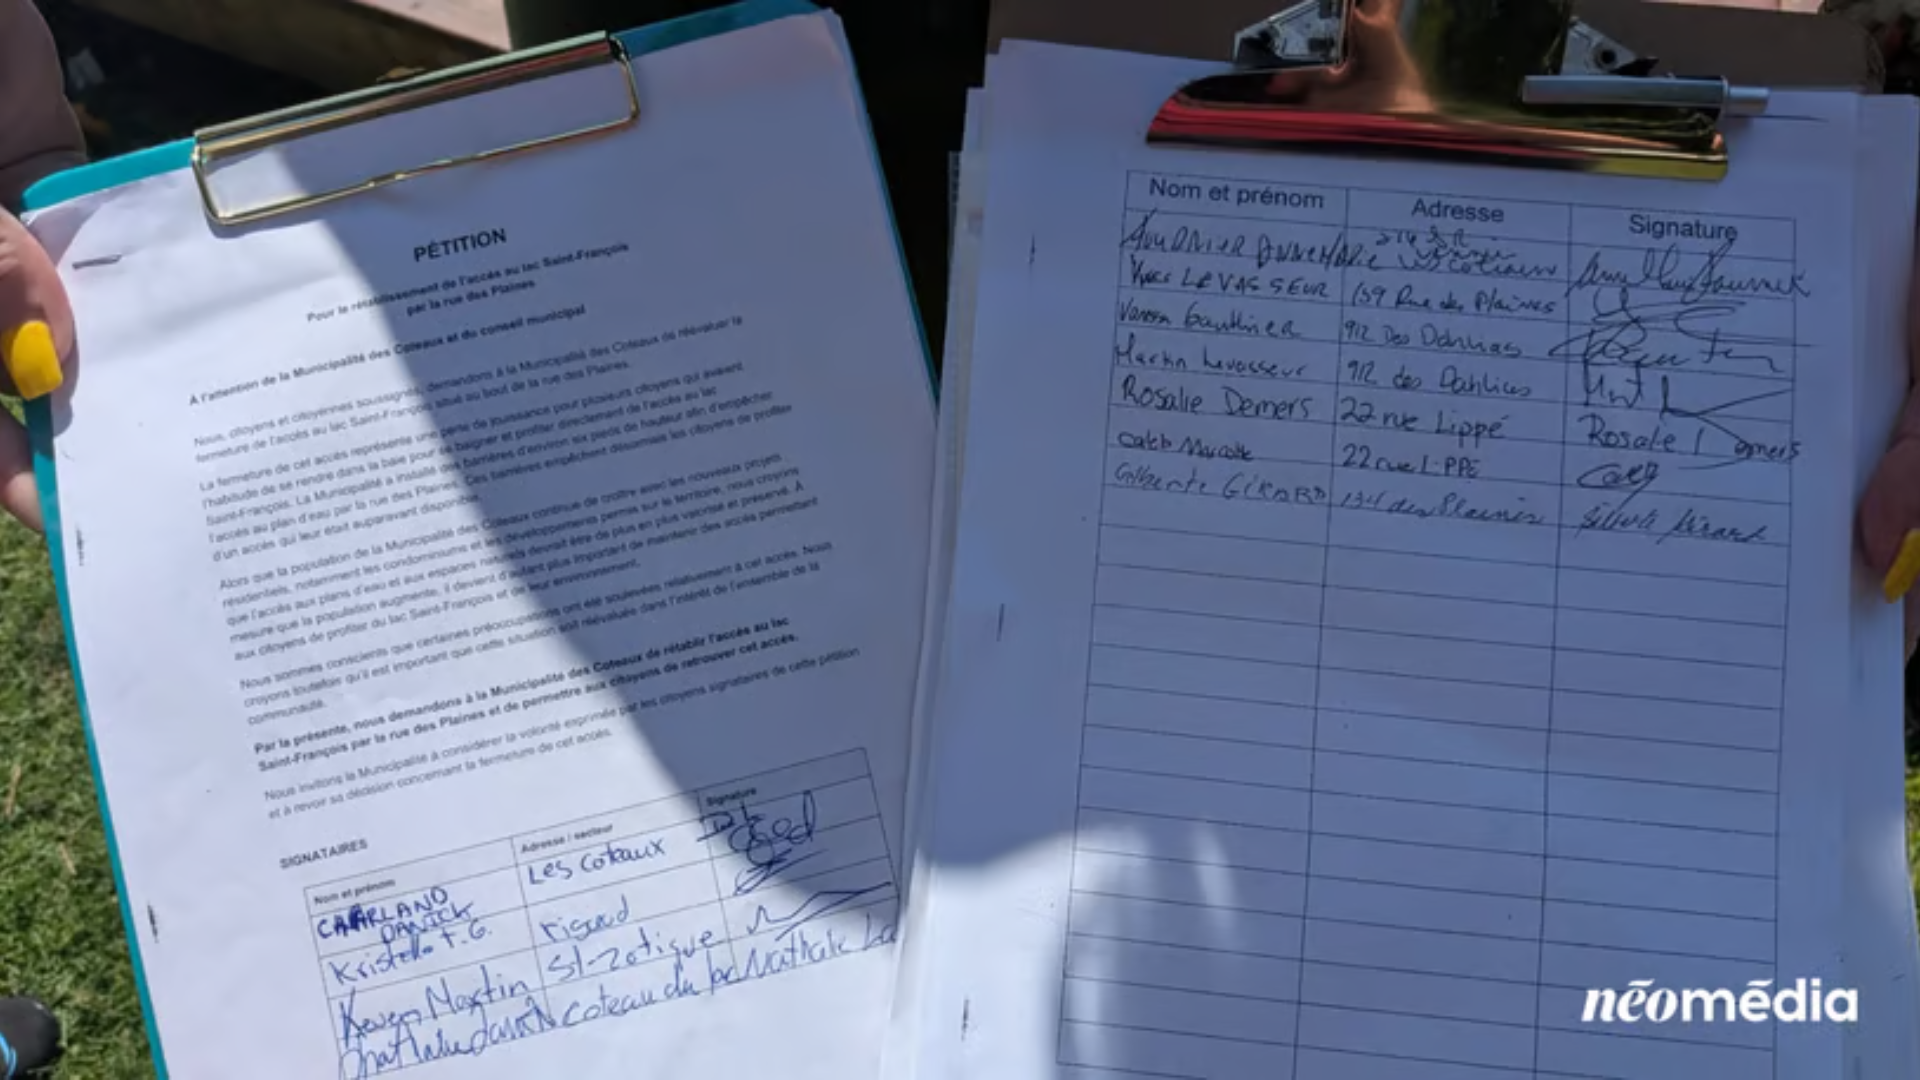 PÉTITION
Pour le rétablissement de l'accès au lac Saint-François
par la rue des Plaines
À l'attention de la Municipalité des Coteaux et du conseil municipal
Nous, citoyens et citoyennes soussignés, demandons à la Municipalité des Coteaux de réévaluer la
fermeture de l'accès au lac Saint-François situé au bout de la rue des Plaines.
La fermeture de cet accès représente une perte de jouissance pour plusieurs citoyens qui avaient
l'habitude de se rendre dans la baie pour se baigner et profiter directement de l'accès au lac
Saint-François. La Municipalité a installé des barrières d'environ six pieds de hauteur afin d'empêcher
l'accès au plan d'eau par la rue des Plaines. Ces barrières empêchent désormais les citoyens de profiter
d'un accès qui leur était auparavant disponible.
Alors que la population de la Municipalité des Coteaux continue de croître avec les nouveaux projets
résidentiels, notamment les condominiums et les développements permis sur le territoire, nous croyons
que l'accès aux plans d'eau et aux espaces naturels devrait être de plus en plus valorisé et préservé. À
mesure que la population augmente, il devient d'autant plus important de maintenir des accès permettant
aux citoyens de profiter du lac Saint-François et de leur environnement.
Nous sommes conscients que certaines préoccupations ont été soulevées relativement à cet accès. Nous
croyons toutefois qu'il est important que cette situation soit réévaluée dans l'intérêt de l'ensemble de la
communauté.
Par la présente, nous demandons à la Municipalité des Coteaux de rétablir l'accès au lac
Saint-François par la rue des Plaines et de permettre aux citoyens de retrouver cet accès.
Nous invitons la Municipalité à considérer la volonté exprimée par les citoyens signataires de cette pétition
et à revoir sa décision concernant la fermeture de cet accès.
SIGNATAIRES
Nom et prénom Adresse / secteur Signature
CHARLAND DANICK Les Coteaux
Kristella T.G. rigaud
Keven Martin St-Zotique
coteau du lac Nathalie
Nom et prénom Adresse Signature
ANNEMARIE
Yves LEVASSEUR 159 Rue des Plaines
Vanessa Gauthier 912 Des Dahlias
Martin Levasseur 912 des Dahlias
Rosalie Demers 22 rue Lippé Rosalie Demers
Caleb Marcotte 22 rue LIPPÉ Caleb
Gilberte GIRARD 134 des Plaines Gilberte Girard
néomédia